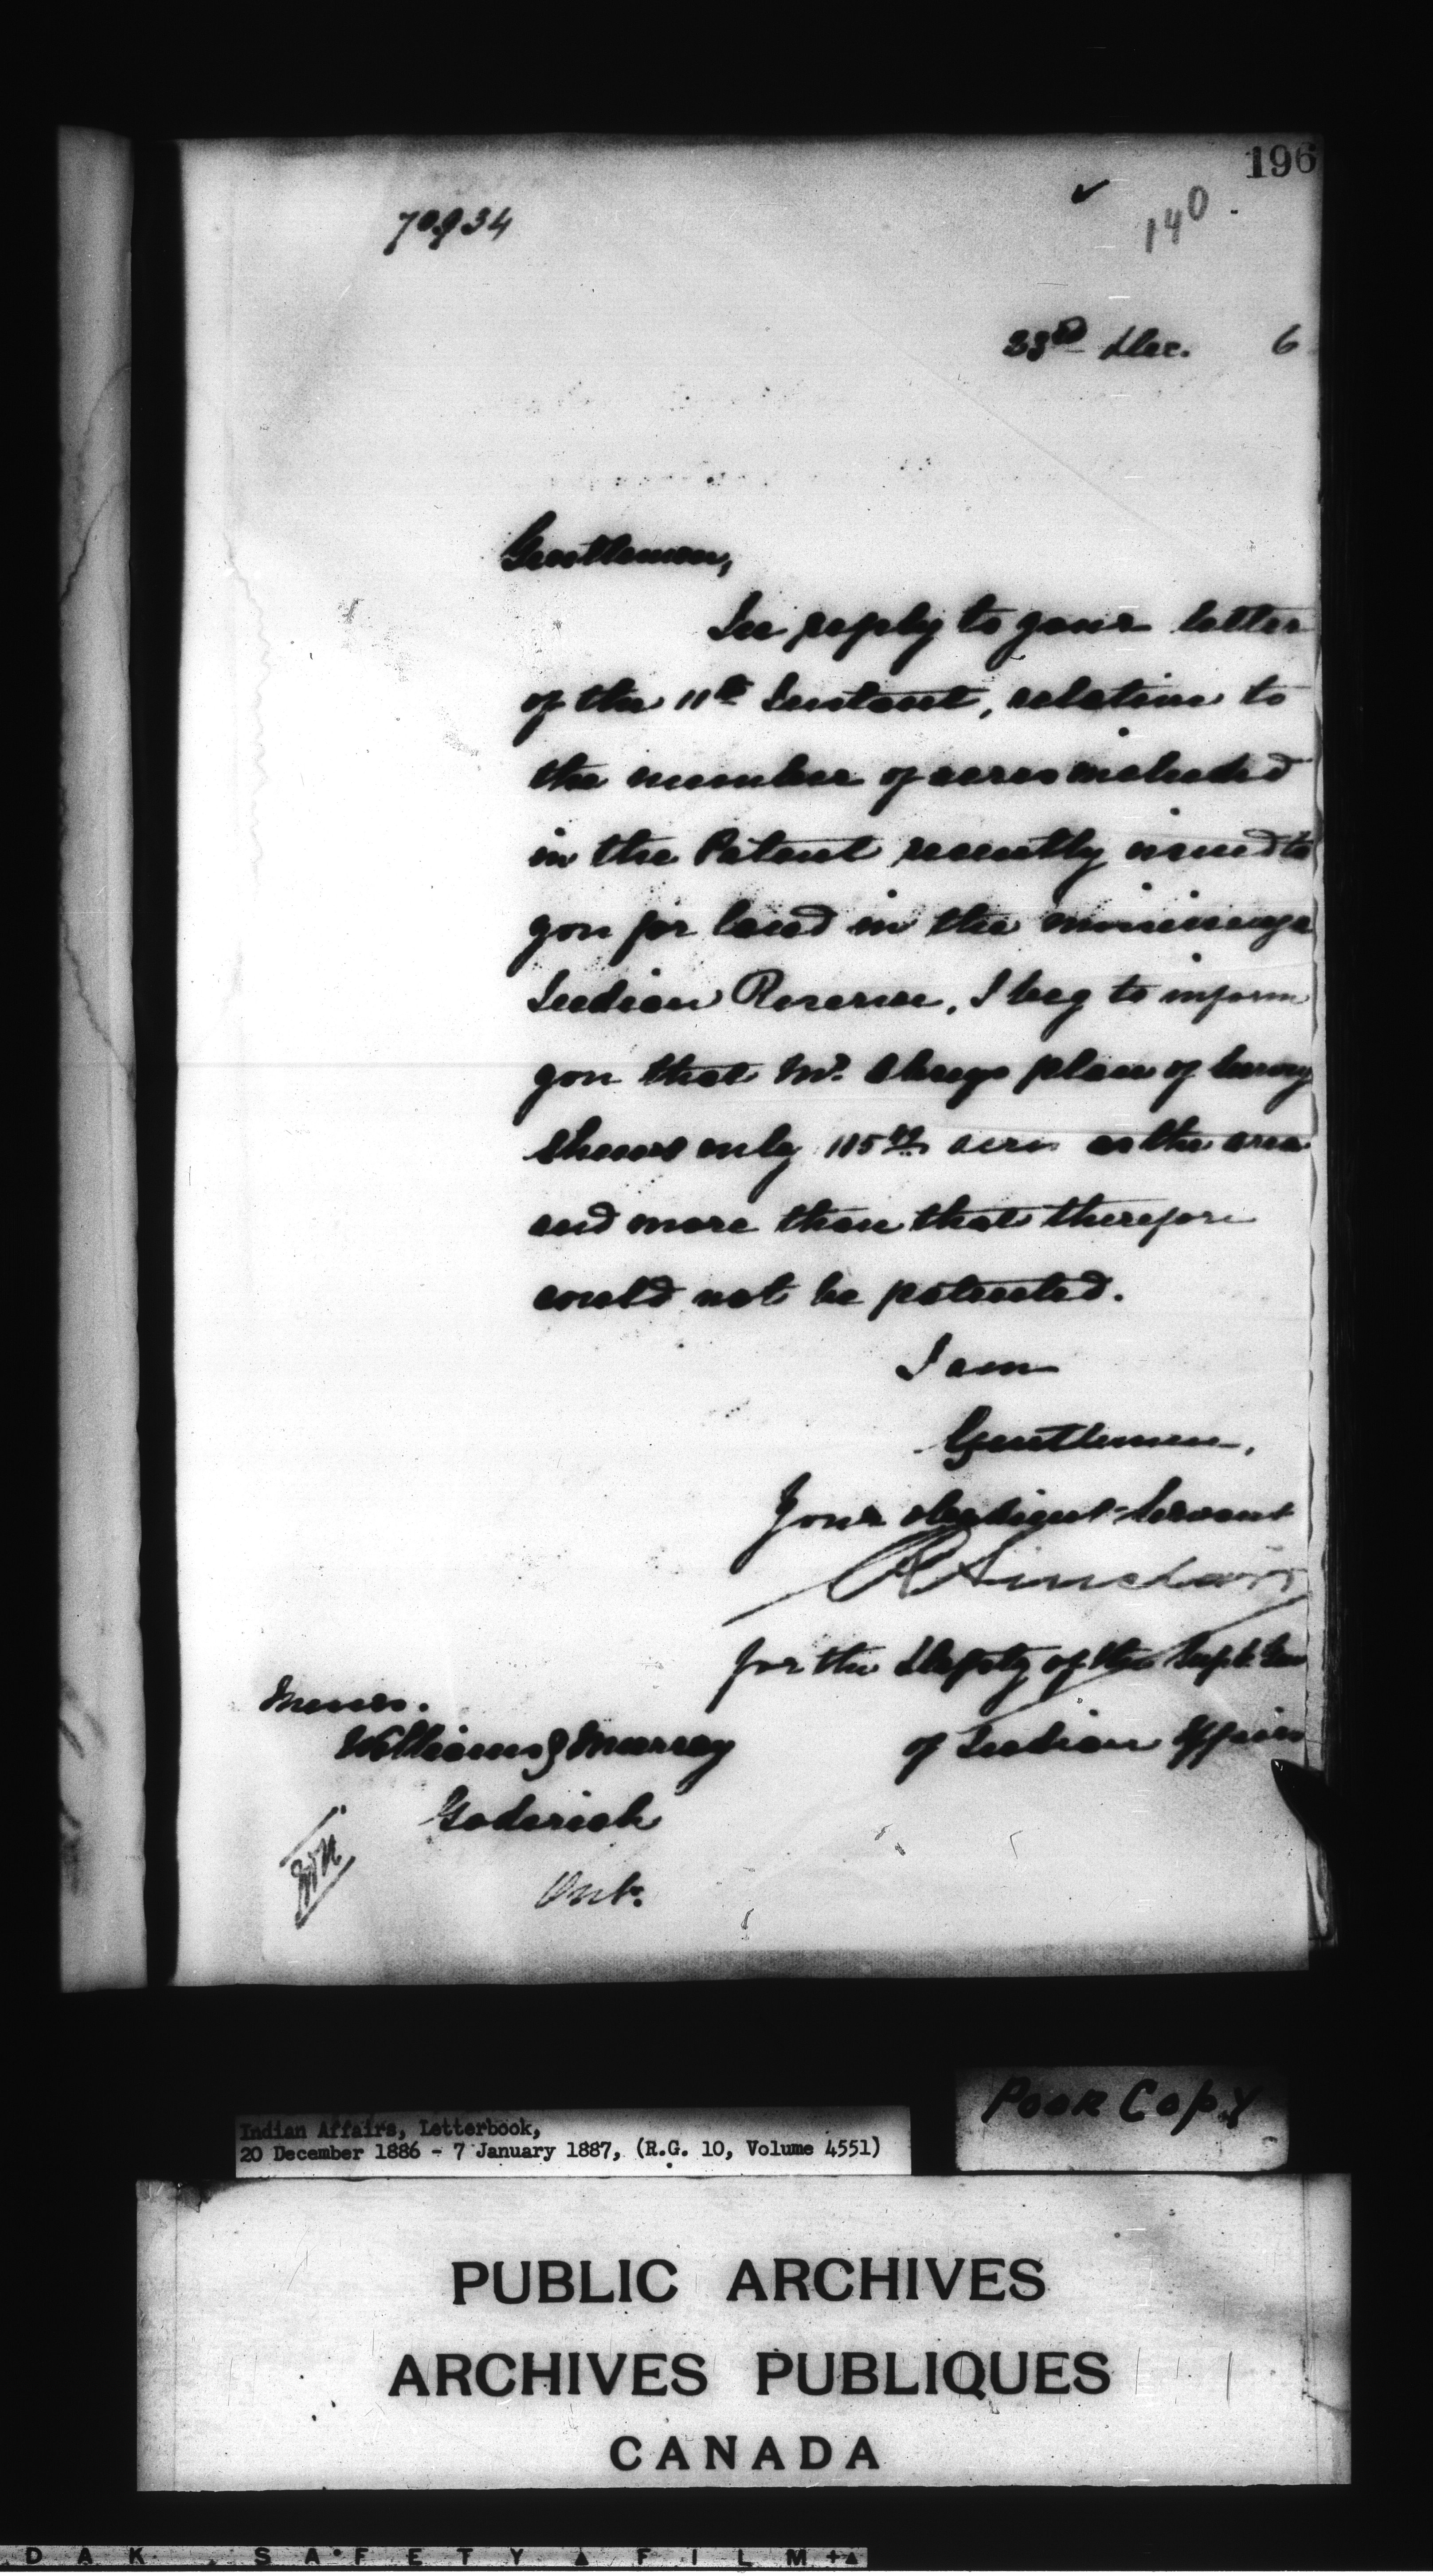 196
140
70934
23rd Dec. 6
Gentlemen,
In reply to your letter
of the 11th Instant, relative to
the number of acres included
in the Patent recently issued to
you for land in the
Indian Reserve, I beg to inform
you that Mr. plan of survey
shews only acres as the area
and more than that therefore
could not be patented.
I am
Gentlemen,
Your obedient Servant
R Sinclair
for the Deputy of the Supt. Gen
of Indian Affairs
Messrs.
Williams & Murray
Goderich
Ont.
Poor Copy
Indian Affairs, Letterbook,
20 December 1886 - 7 January 1887, (R.G. 10, Volume 4551)
PUBLIC ARCHIVES
ARCHIVES PUBLIQUES
CANADA
DAK SAFETY FILM